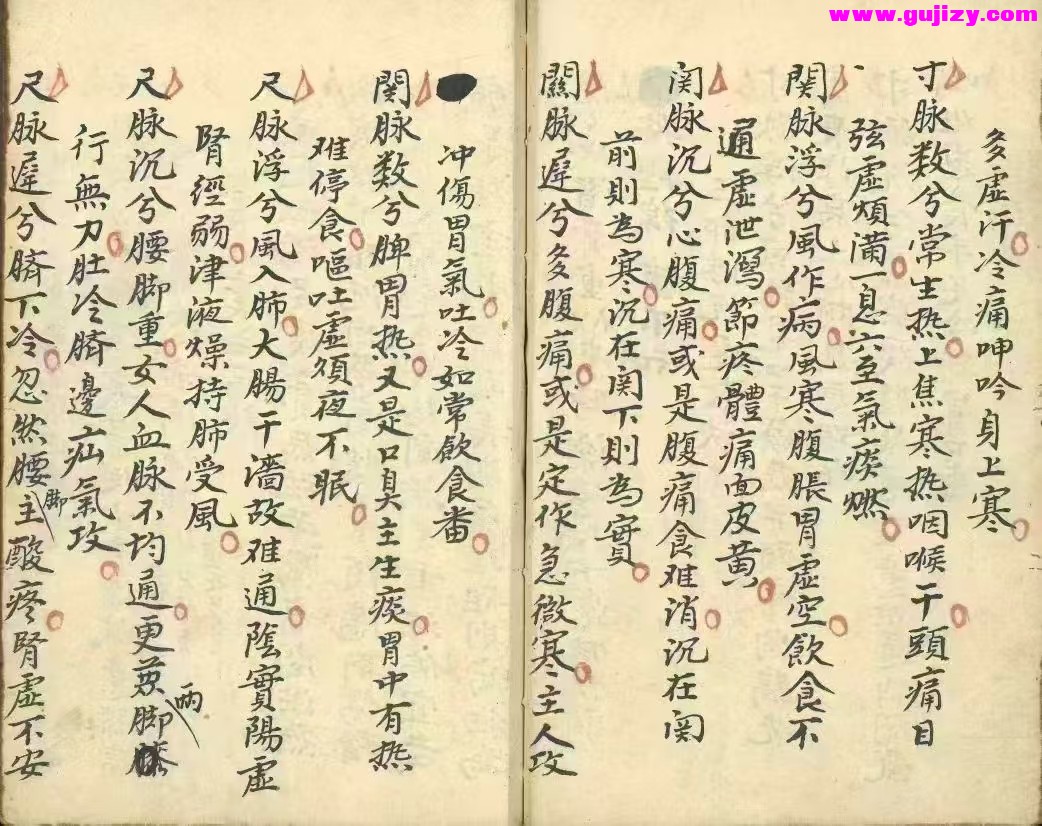 www.gujizy.com
多虛汗冷痛呻吟身上寒
寸脉数兮常生热上焦寒热咽喉干頭痛目
弦虛煩满一息六至氣痰燃
関脉浮兮風作病風寒腹脹胃虛空飲食不
通虛泄瀉節疼體痛面皮黄
関脉沉兮心腹痛或是腹痛食难消沉在関
前則為寒沉在関下則為實
關脉遲兮多腹痛或是定作急微寒主人攻
冲傷胃氣吐冷如常飲食番
関脉数兮脾胃热又是口臭主生痰胃中有热
难停食嘔吐虛須夜不眠
尺脉浮兮風入肺大腸干濇故难通陰實陽虛
腎經弱津液燥持肺受風
尺脉沉兮腰脚重女人血脉不均通更兼兩脚膝
行無力肚冷臍邊疝氣攻
尺脉遲兮臍下冷忽然腰脚主酸疼腎虛不安